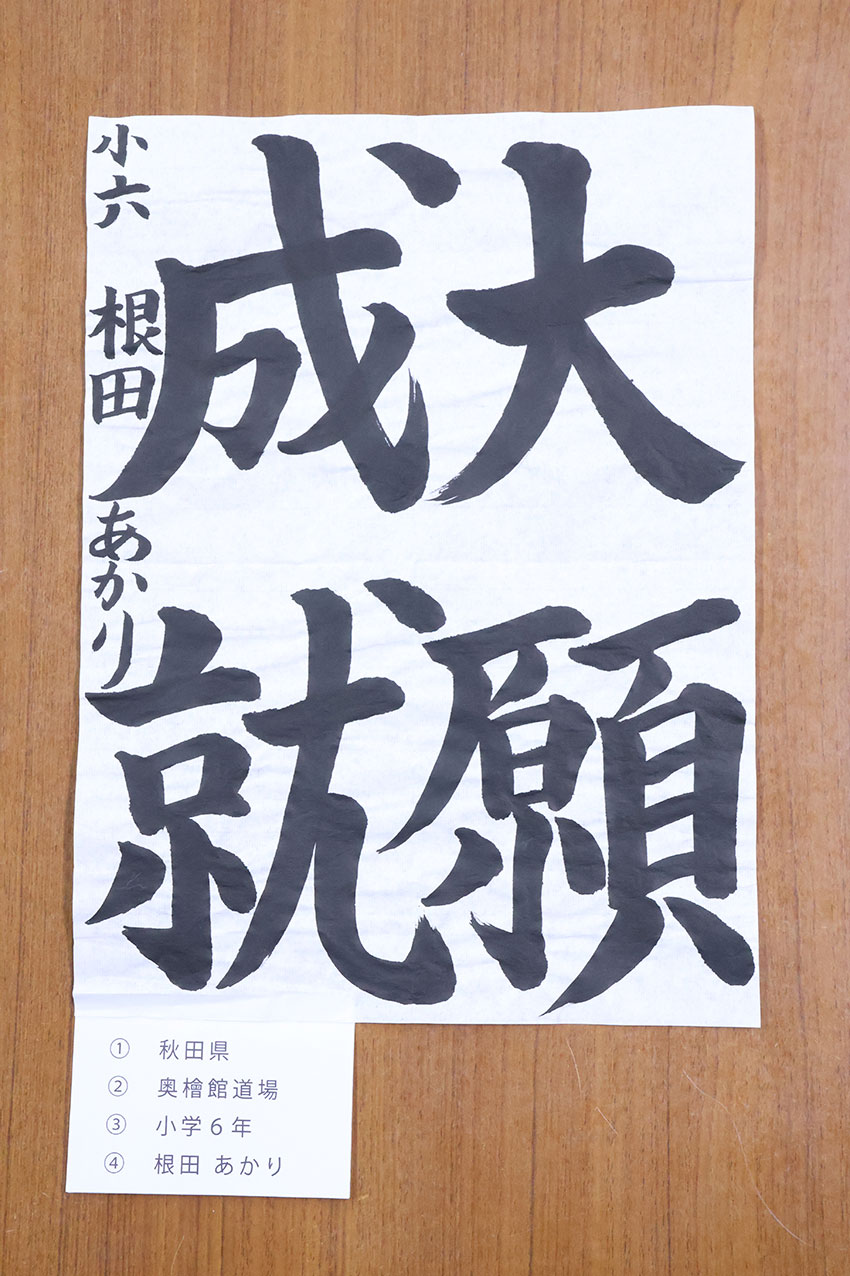 大願
成就
小六 根田 あかり
① 秋田県
② 奥檜館道場
③ 小学6年
④ 根田 あかり